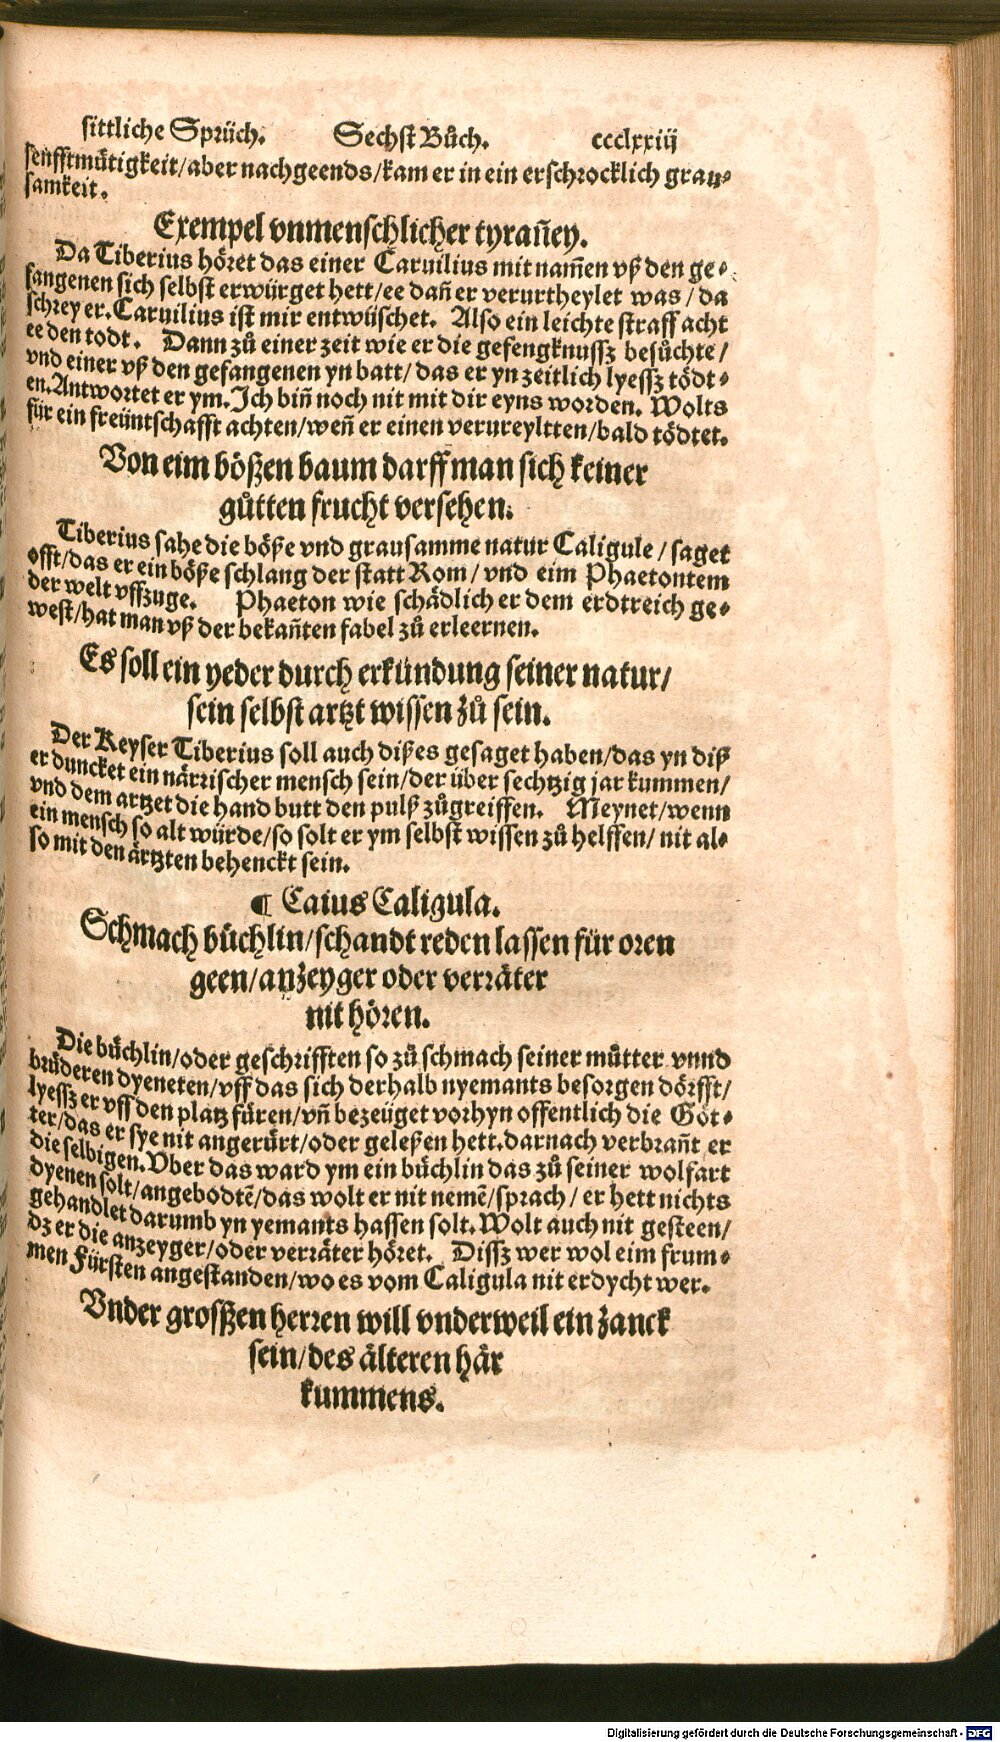 sittliche Sprüch. Sechst Bůch. ccclxxiij
senfftmütigkeit/aber nachgeends/kam er in ein erschrocklich grau⸗
samkeit.
Exempel vnmenschlicher tyrañey.
Da Tiberius höret das einer Caruilius mit nam̃en vß den ge⸗
fangenen sich selbst erwürget hett/ee dañ er verurtheylet was/da
schrey er. Caruilius ist mir entwüschet. Also ein leichte straff acht
ee den todt. Dann zů einer zeit wie er die gefengknussz besůchte/
vnd einer vß den gefangenen yn batt/das er yn zeitlich lyessz tödt⸗
en. Antwortet er ym. Ich biñ noch nit mit dir eyns worden. Wolts
für ein freüntschafft achten/weñ er einen verureyltten/bald tödtet.
Von eim bößen baum darff man sich keiner
gůtten frucht versehen.
Tiberius sahe die böße vnd grausamme natur Caligule/saget
offt/das er ein böße schlang der statt Rom/vnd eim Phaetontem
der welt vffzuge. Phaeton wie schädlich er dem erdtreich ge⸗
west/hat man vß der bekañten fabel zů erleernen.
Es soll ein yeder durch erkündung seiner natur/
sein selbst artzt wissen zů sein.
Der Keyser Tiberius soll auch dißes gesaget haben/das yn diß
er duncket ein närrischer mensch sein/der über sechtzig jar kummen/
vnd dem artzet die hand butt den pulß zůgreiffen. Meynet/wenn
ein mensch so alt würde/so solt er ym selbst wissen zů helffen/nit al⸗
so mit den ärtzten behenckt sein.
¶ Caius Caligula.
Schmach büchlin/schandt reden lassen für oren
geen/anzeyger oder verräter
nit hören.
Die büchlin/oder geschrifften so zů schmach seiner můtter vnnd
brüderen dyeneten/vff das sich derhalb nyemants besorgen dörfft/
lyessz er vff den platz füren/vñ bezeüget vorhyn offentlich die Göt⸗
ter/das er sye nit angerürt/oder geleßen hett. darnach verbrañt er
die selbigen. Vber das ward ym ein büchlin das zů seiner wolfart
dyenen solt/angebodtẽ/das wolt er nit nemẽ/sprach/er hett nichts
gehandlet darumb yn yemants hassen solt. Wolt auch nit gesteen/
dz er die anzeyger/oder verräter höret. Dissz wer wol eim frum⸗
men Fürsten angestanden/wo es vom Caligula nit erdycht wer.
Vnder grosßen herren will vnderweil ein zanck
sein/des älteren här
kummens.
Digitalisierung gefördert durch die Deutsche Forschungsgemeinschaft - DFG